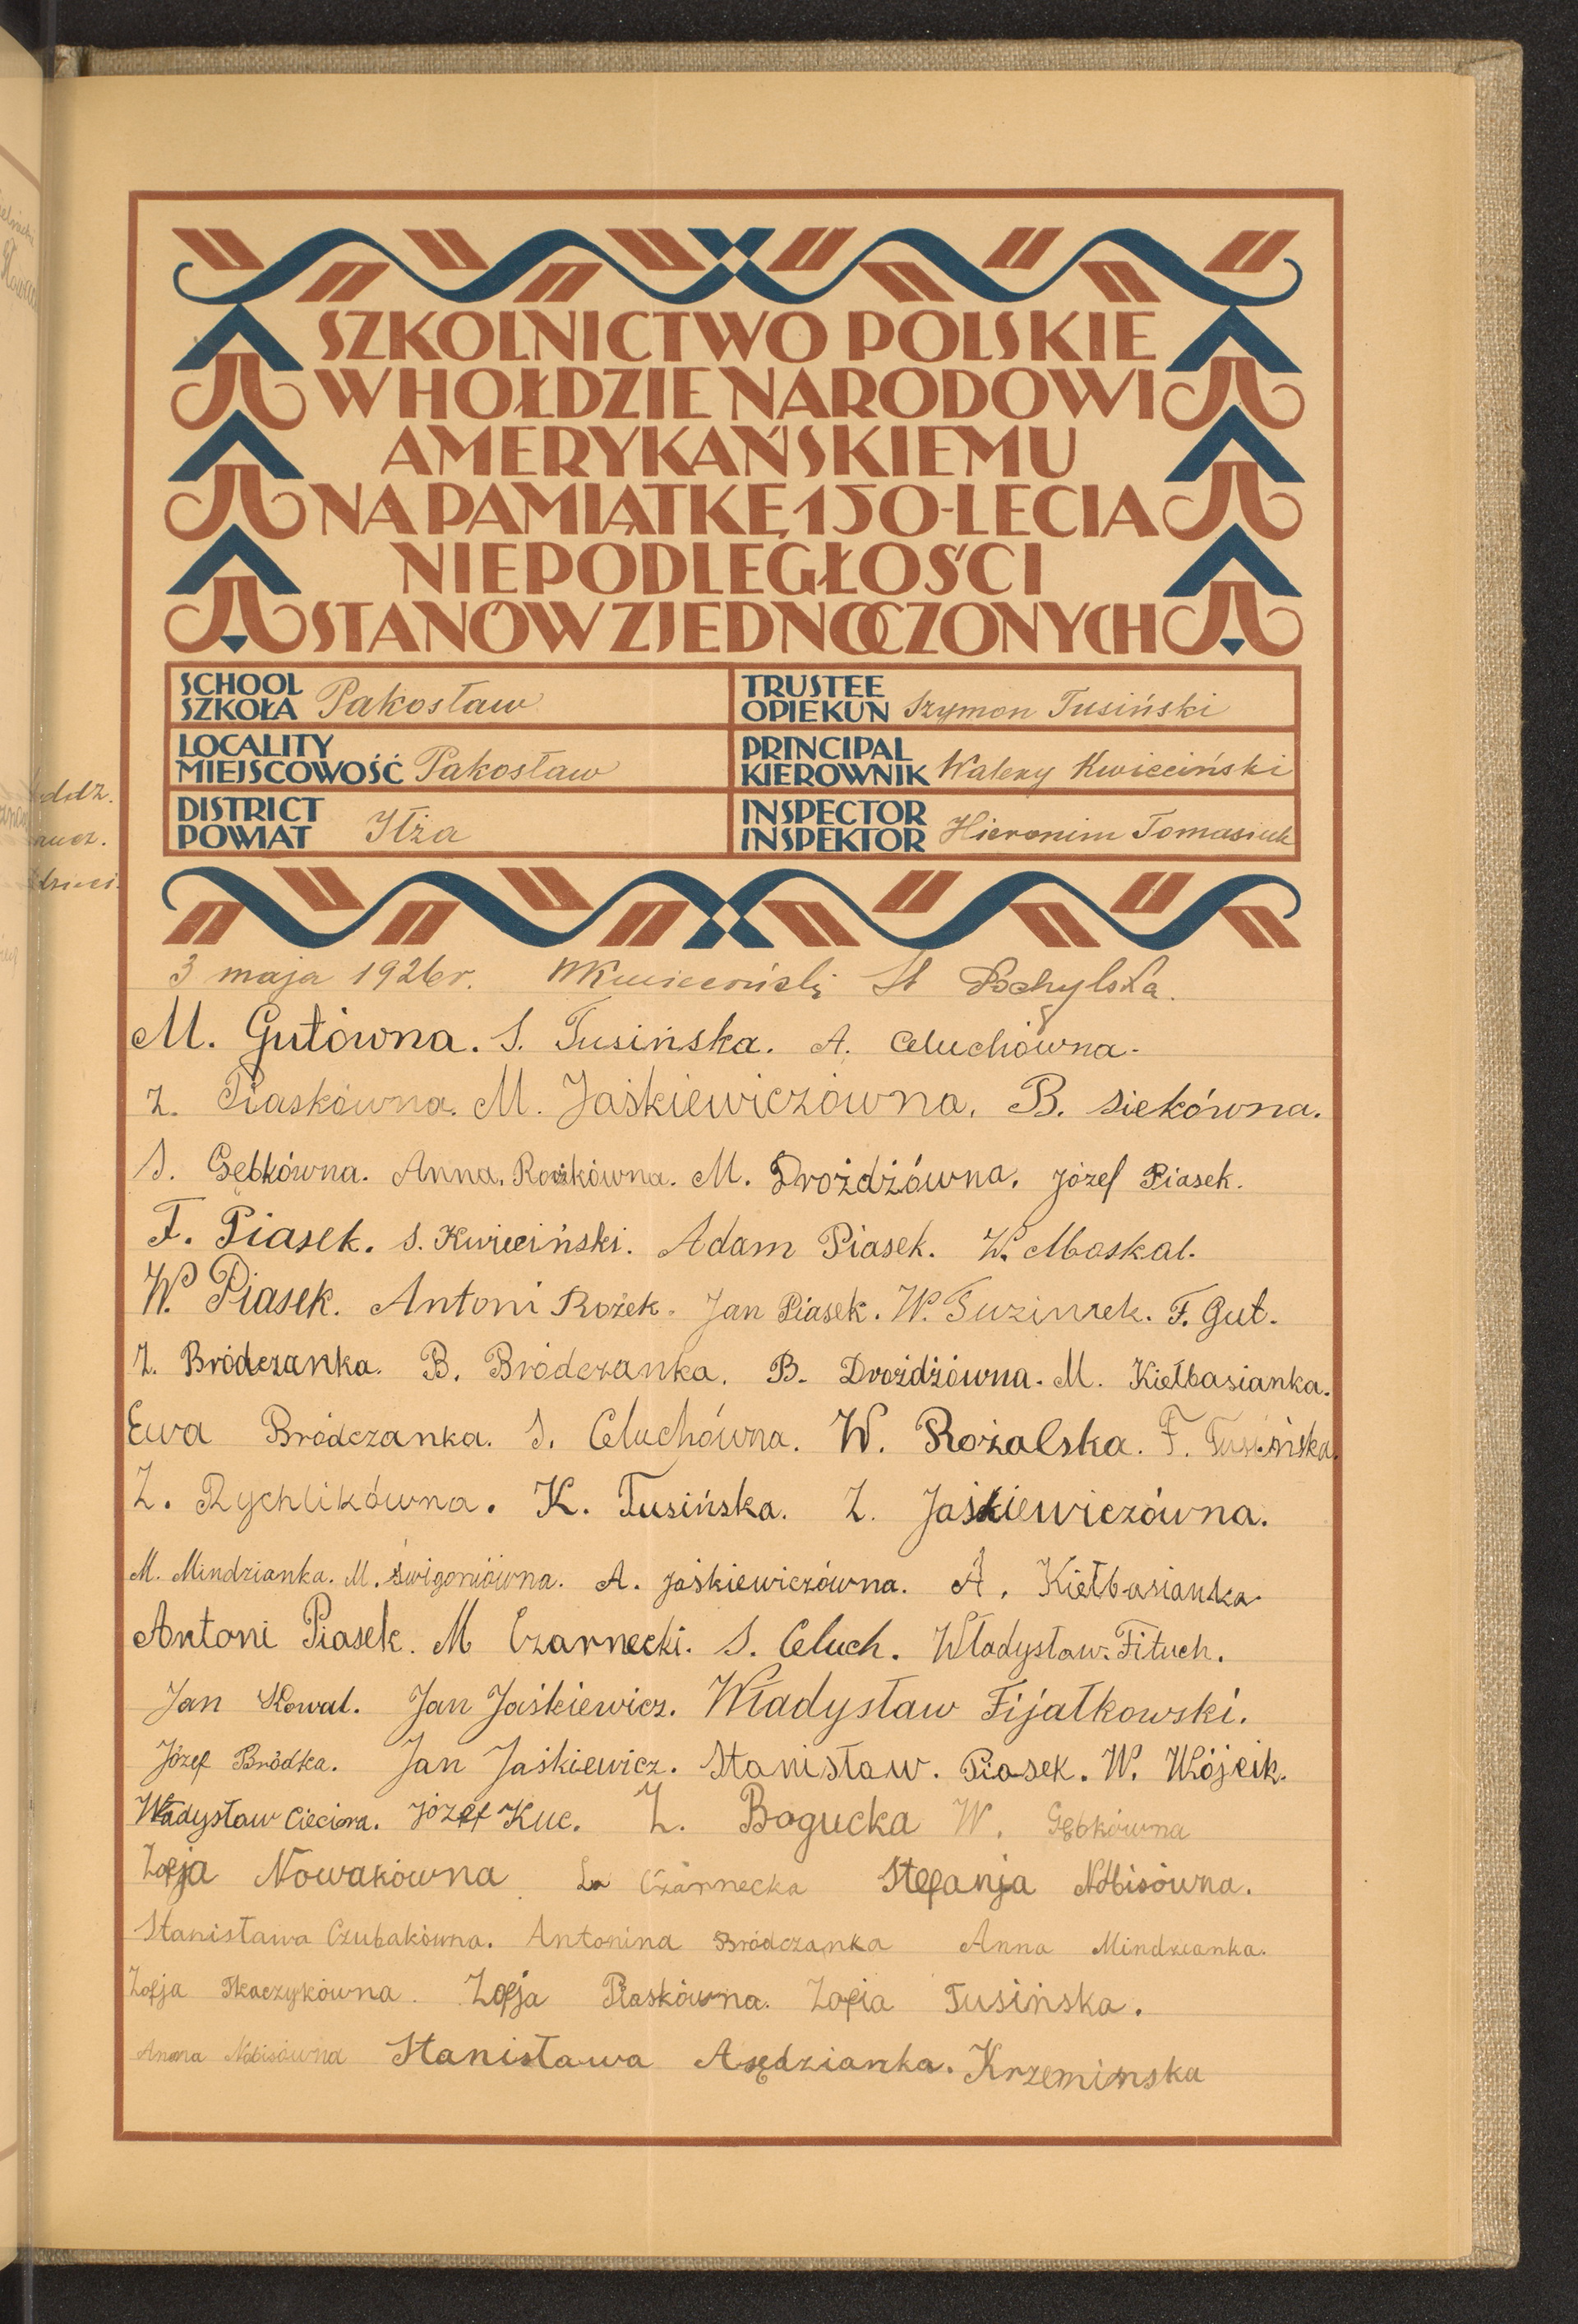 SZKOLNICTWO POLSKIE
W HOŁDZIE NARODOWI
AMERYKAŃSKIEMU
NA PAMIĄTKĘ 150-LECIA
NIEPODLEGŁOŚCI
STANÓW ZJEDNOCZONYCH
SCHOOL
SZKOŁA Pakosław
TRUSTEE
OPIEKUN Szymon Tusiński
LOCALITY
MIEJSCOWOŚĆ Pakosław
PRINCIPAL
KIEROWNIK Walery Kwieciński
DISTRICT
POWIAT Iłża
INSPECTOR
INSPEKTOR Hieronim Tomasiuk
3 maja 1926r. WKwieciński St Pochylska.
M. Gutówna. S. Tusińska. A. Celuchówna.
Z. Piaskówna. M. Jaśkiewiczówna. B. Siekówna.
S. Gębkówna. Anna. Rożkówna. M. Drożdżówna. Józef Piasek.
F. Piasek. S. Kwieciński. Adam Piasek. W. Moskal.
W. Piasek. Antoni Rożek. Jan Piasek. W. Guzimek. F. Gut.
Z. Bródczanka. B. Bródczanka. B. Drożdżówna. M. Kiełbasianka.
Ewa Bródczanka. S. Celuchówna. W. Rożalska. F. Tusińska.
Z. Rychlikówna. K. Tusińska. Z. Jaśkiewiczówna.
M. Mindzianka. M. Świgoniówna. A. Jaśkiewiczówna. A. Kiełbasianka.
Antoni Piasek. M Czarnecki. S. Celuch. Władysław. Fituch.
Jan Kowal. Jan Jaśkiewicz. Władysław Fijałkowski.
Józef Bródka. Jan Jaśkiewicz. Stanisław. Piasek. W. Wójcik.
Władysław Cieciora. Józef Kuc. Z. Bogucka W. Gębkówna
Zofja Nowakówna Czarnecka Stefanja Nobisówna.
Stanisława Czubakówna. Antonina Bródczanka Anna Mindzianka.
Zofja Tkaczykówna. Zofja Piaskówna. Zofia Tusińska.
Anna Nobisówna Stanisława Krzemińska